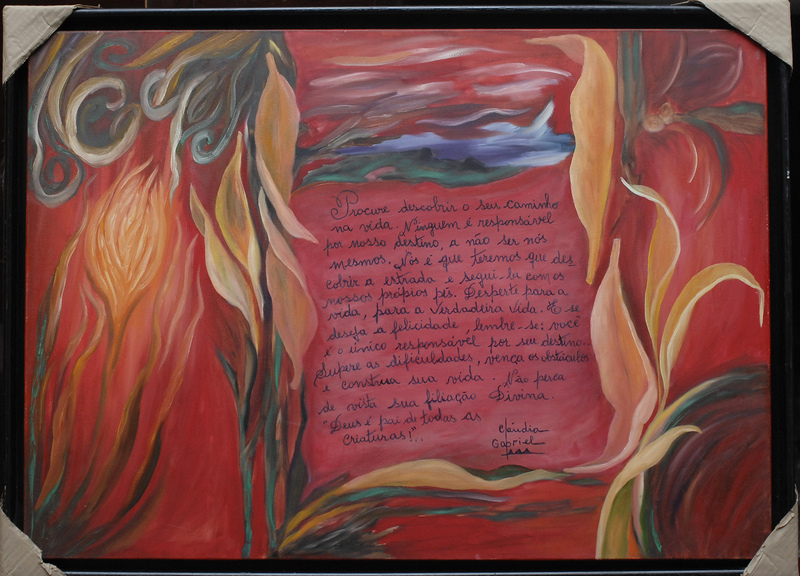 Procure descobrir o seu caminho
na vida. Ninguem é responsável
por nosso destino, a não ser nós
mesmos. Nós é que teremos que des
cobrir a estrada e segui-la com os
nossos próprios pés. Desperte para a
vida, para a Verdadeira Vida. E se
deseja a felicidade, lembre-se: você
é o único responsável por seu destino.
Supere as dificuldades, vença os obstáculos
e construa sua vida. Não perca
de vista sua filiação Divina.
"Deus é pai de todas as
criaturas!"..
Claudia
Gabriel